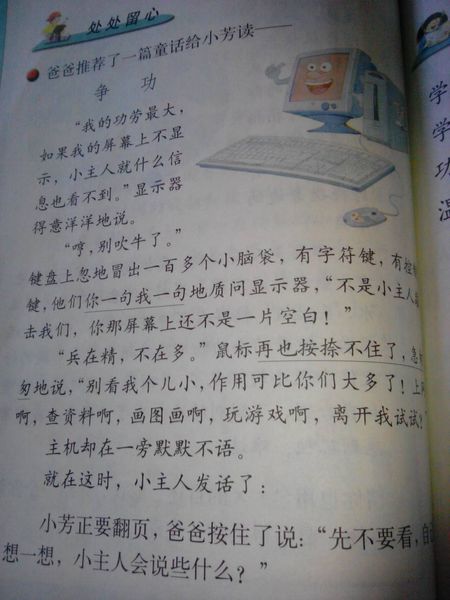 处处留心
爸爸推荐了一篇童话给小芳读——
争 功
“我的功劳最大，
如果我的屏幕上不显
示，小主人就什么信
息也看不到。”显示器
得意洋洋地说。
“哼，别吹牛了。”
键盘上忽地冒出一百多个小脑袋，有字符键，有控
键，他们你一句我一句地质问显示器，“不是小主人
击我们，你那屏幕上还不是一片空白！”
“兵在精，不在多。”鼠标再也按捺不住了，急
匆地说，“别看我个儿小，作用可比你们大多了！上
啊，查资料啊，画图画啊，玩游戏啊，离开我试试？”
主机却在一旁默默不语。
就在这时，小主人发话了：
小芳正要翻页，爸爸按住了说：“先不要看，自
想一想，小主人会说些什么？”
学
学
功
温